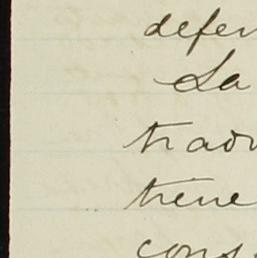 defen
La
tradu
trène
cons